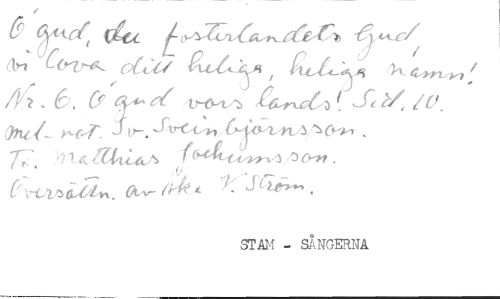 O gud, du fosterlandets Gud,
vi lova ditt heliga, heliga namn!
Nr. 6. O gud vors lands! Sid. 10.
mel-not. Sv. Sveinbjörnsson.
Tx. Matthias Jochumsson.
Översättn. av Åke V. Ström.
STAM - SÅNGERNA